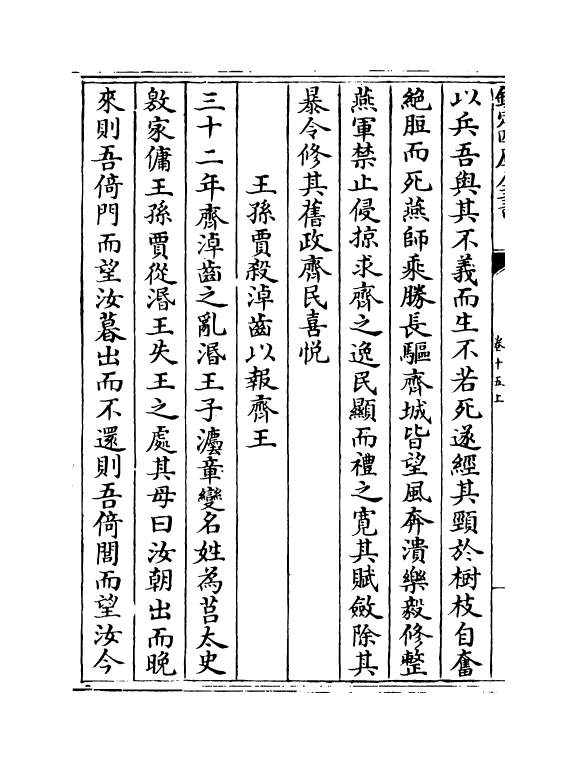 欽定四庫全書
卷十五上
以兵吾與其不義而生不若死遂經其頸於樹枝自奮
絶脰而死燕師乘勝長驅齊城皆望風奔潰樂毅修整
燕軍禁止侵掠求齊之逸民顯而禮之寛其賦斂除其
暴令修其舊政齊民喜悦
王孫賈殺淖齒以報齊王
三十二年齊淖齒之亂湣王子灋章變名姓為莒太史
敫家傭王孫賈從湣王失王之處其母曰汝朝出而晚
來則吾倚門而望汝暮出而不還則吾倚閭而望汝今